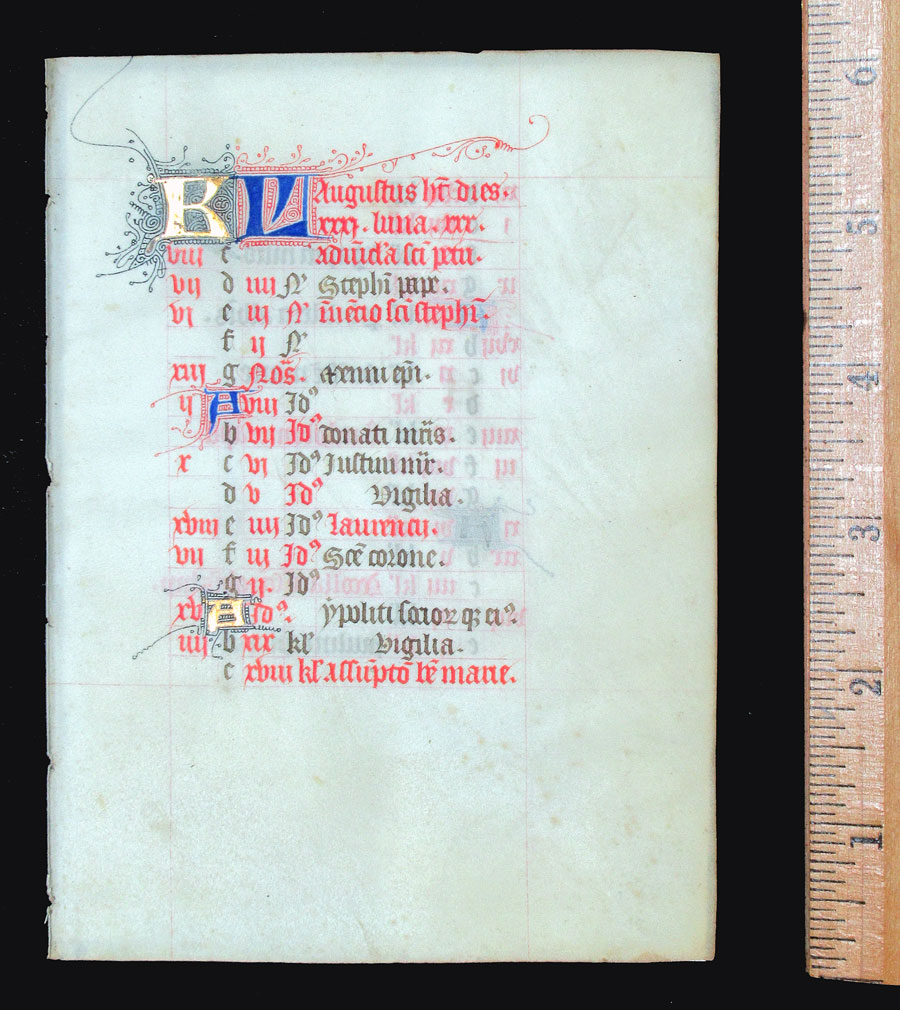 KL Augustus ht̄ dies.
xxxj. luna. xxx.
viii c ad vīcl'a sc̄i petri.
vii d iiii N' Stephī pape.
vi e iii N' īuētio sc̄i stephī.
f ii N'
xiii g Noās. epī.
ii A viii Id9
b vii Id9 donati mr̄is.
x c vi Id9 Justini mr̄.
d v Id9 Vigilia.
xviii e iiii Id9 laurencij.
vii f iii Id9 Scē corone.
g ii. Id9
xv A Id9. ypoliti socior qȝ ei9.
iiii b xix kl' Vigilia.
c xviii kl' Assūpcō bē marie.
6
5
4
3
2
1